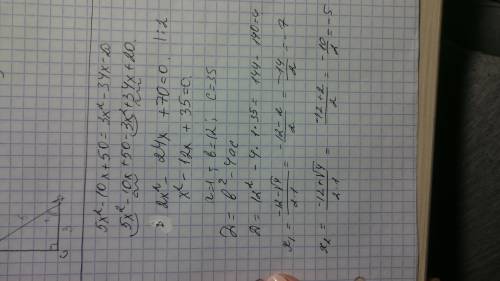 5x² - 10x + 50 = 3x² - 34x - 20
5x² - 10x + 50 - 3x² + 34x + 20
2x² - 24x + 70 = 0. | : 2
x² - 12x + 35 = 0.
a = 1; b = 12; c = 35
D = b² - 4ac
D = 12² - 4 · 1 · 35 = 144 - 140 = 4
x₁ = (-12 - √4) / (2·1) = (-12 - 2) / 2 = -14/2 = -7
x₂ = (-12 + √4) / (2·1) = (-12 + 2) / 2 = -10/2 = -5